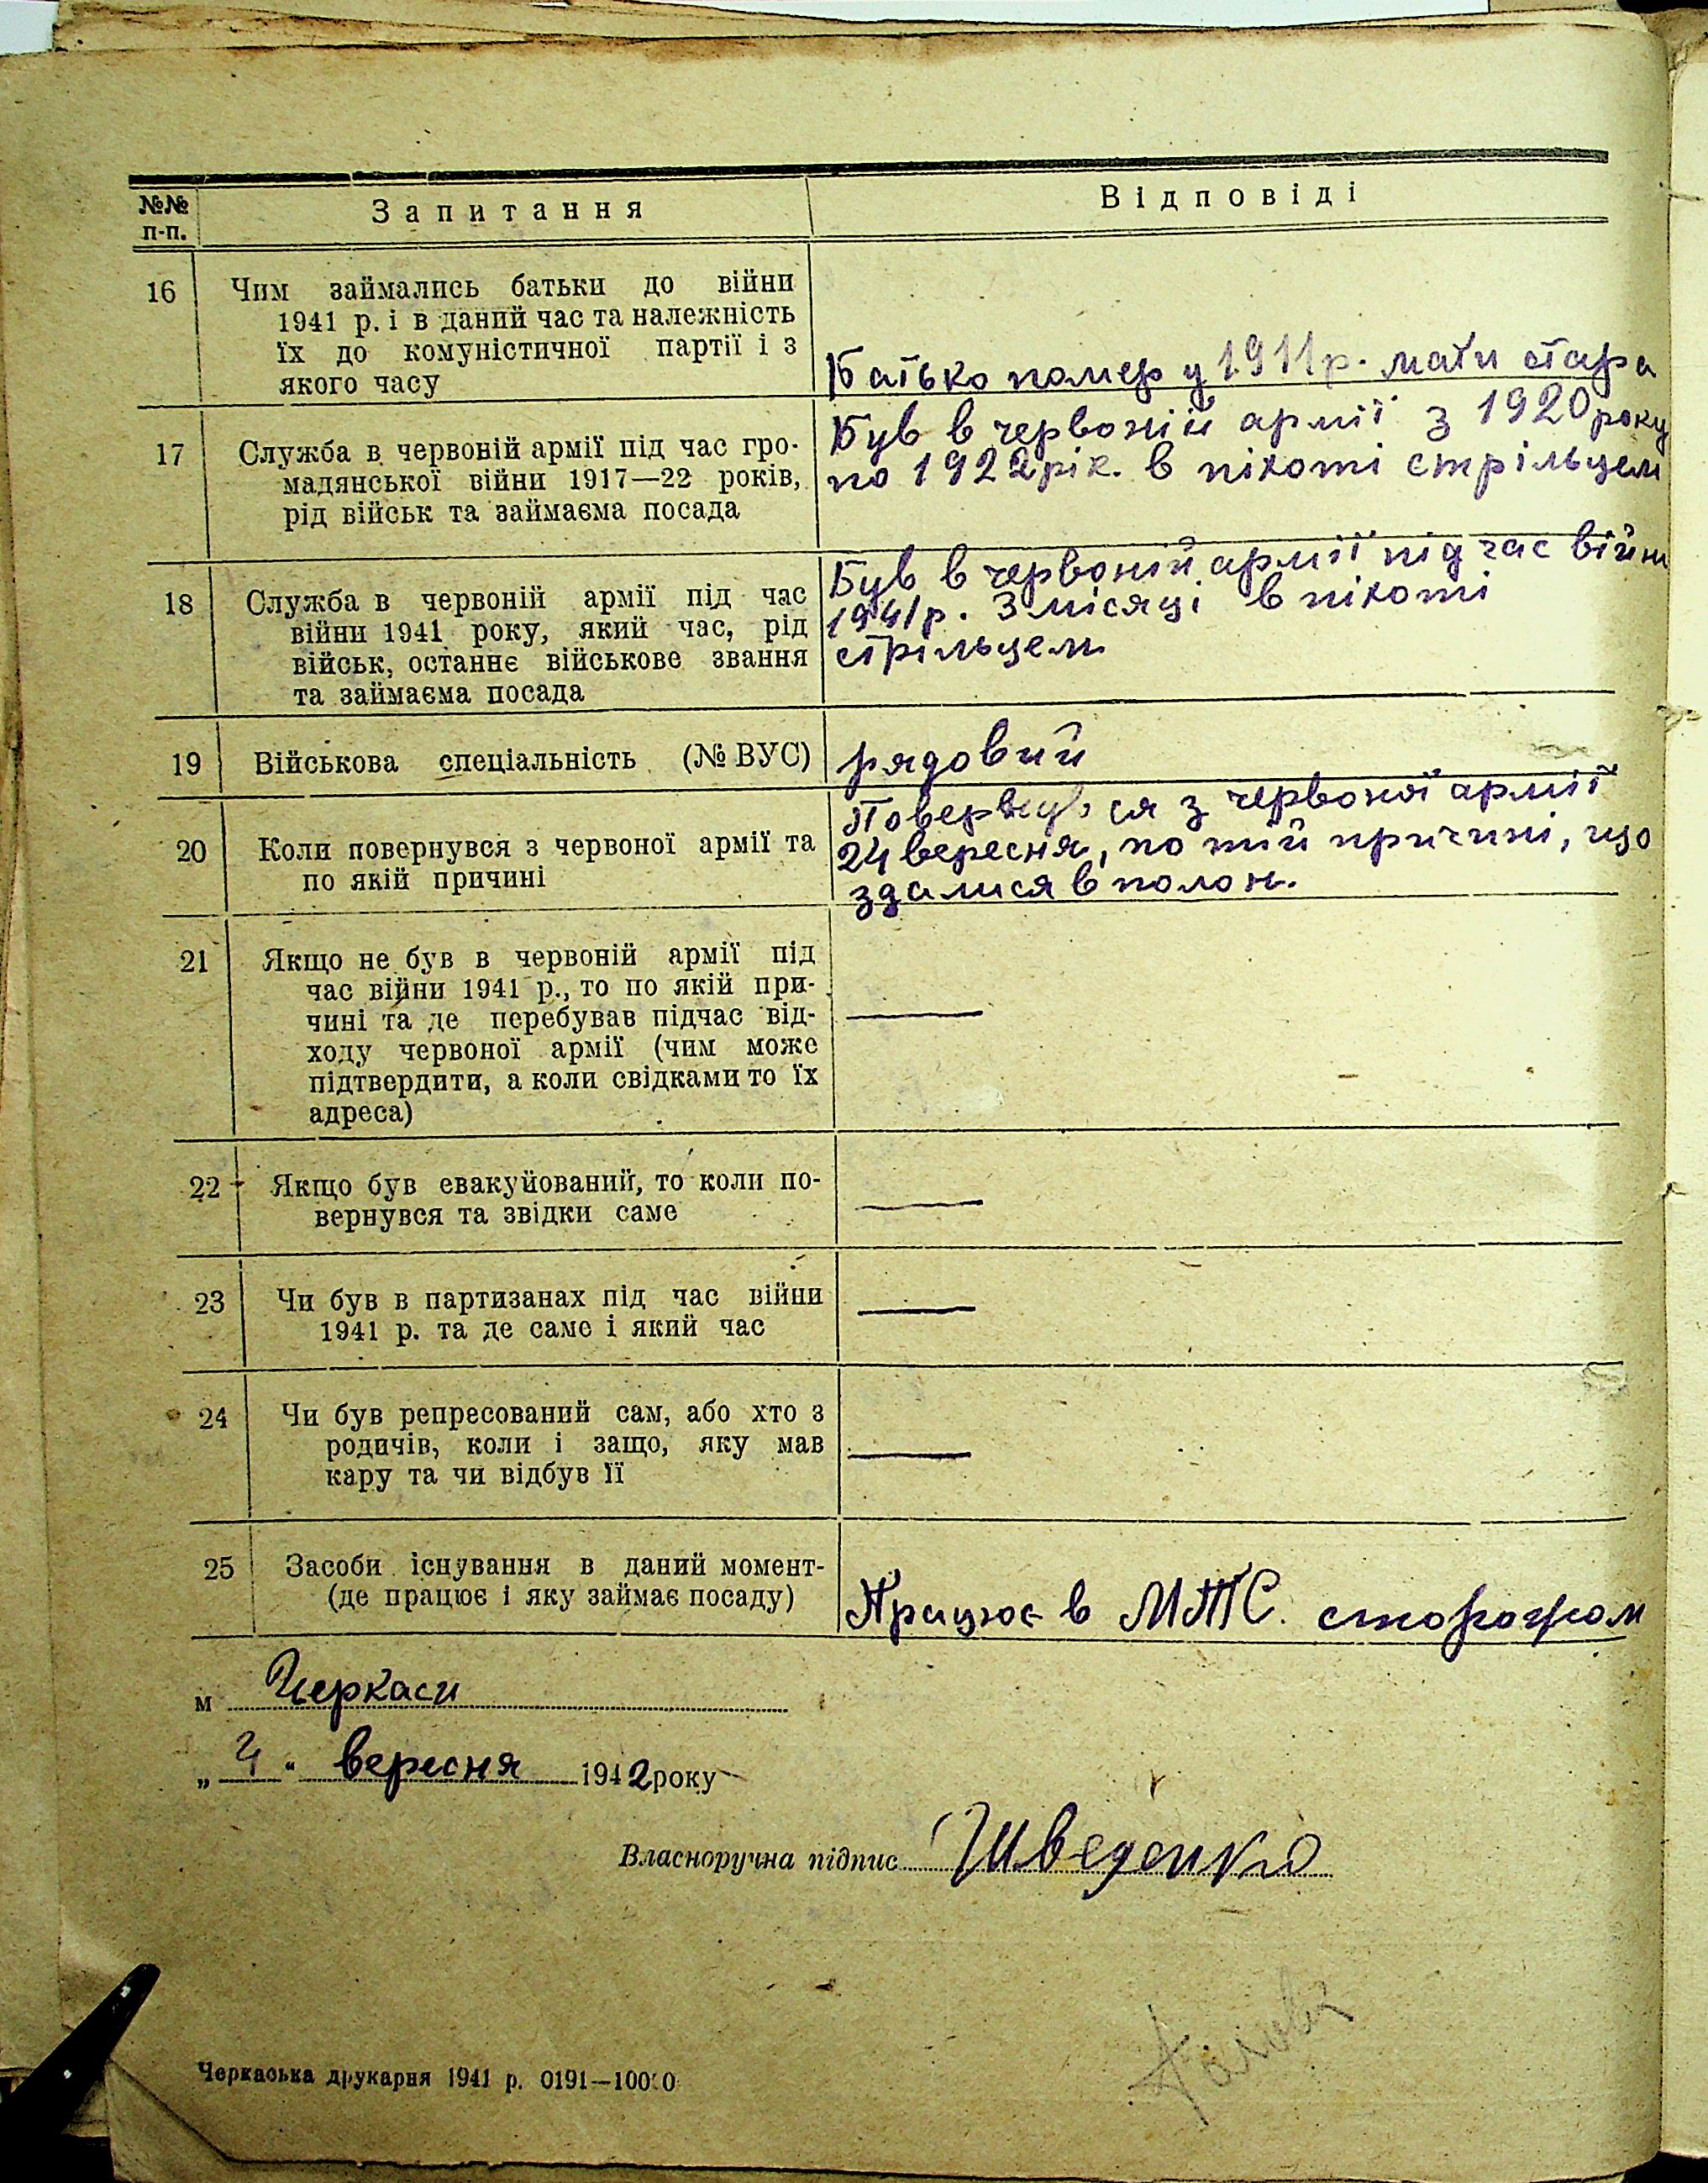 №№
п-п.
Запитання
Відповіді
16
Чим займались батьки до війни
1941 р. і в даний час та належність
їх до комуністичної партії і з
якого часу
Батько помер у 1911 р. мати стара
17
Служба в червоній армії під час гро-
мадянської війни 1917—22 років,
рід військ та займаєма посада
Був в червоній армії з 1920 року
по 1922 рік. в піхоті стрільцем
18
Служба в червоній армії під час
війни 1941 року, який час, рід
військ, останнє військове звання
та займаєма посада
Був в червоній армії під час війни
1941 р. 3 місяці в піхоті
стрільцем
19
Військова спеціальність (№ ВУС)
рядовий
20
Коли повернувся з червоної армії та
по якій причині
Повернувся з червоної армії
24 вересня, по тій причині, що
здалися в полон.
21
Якщо не був в червоній армії під
час війни 1941 р., то по якій при-
чині та де перебував підчас від-
ходу червоної армії (чим може
підтвердити, а коли свідками то їх
адреса)
—
22
Якщо був евакуйований, то коли по-
вернувся та звідки саме
—
23
Чи був в партизанах під час війни
1941 р. та де саме і який час
—
24
Чи був репресований сам, або хто з
родичів, коли і защо, яку мав
кару та чи відбув її
—
25
Засоби існування в даний момент-
(де працює і яку займає посаду)
Працює в МТС. сторожом
м Черкаси
„ 4 " вересня 1942 року
Власноручна підпис Шведенко
Черкаська друкарня 1941 р. 0191—10000